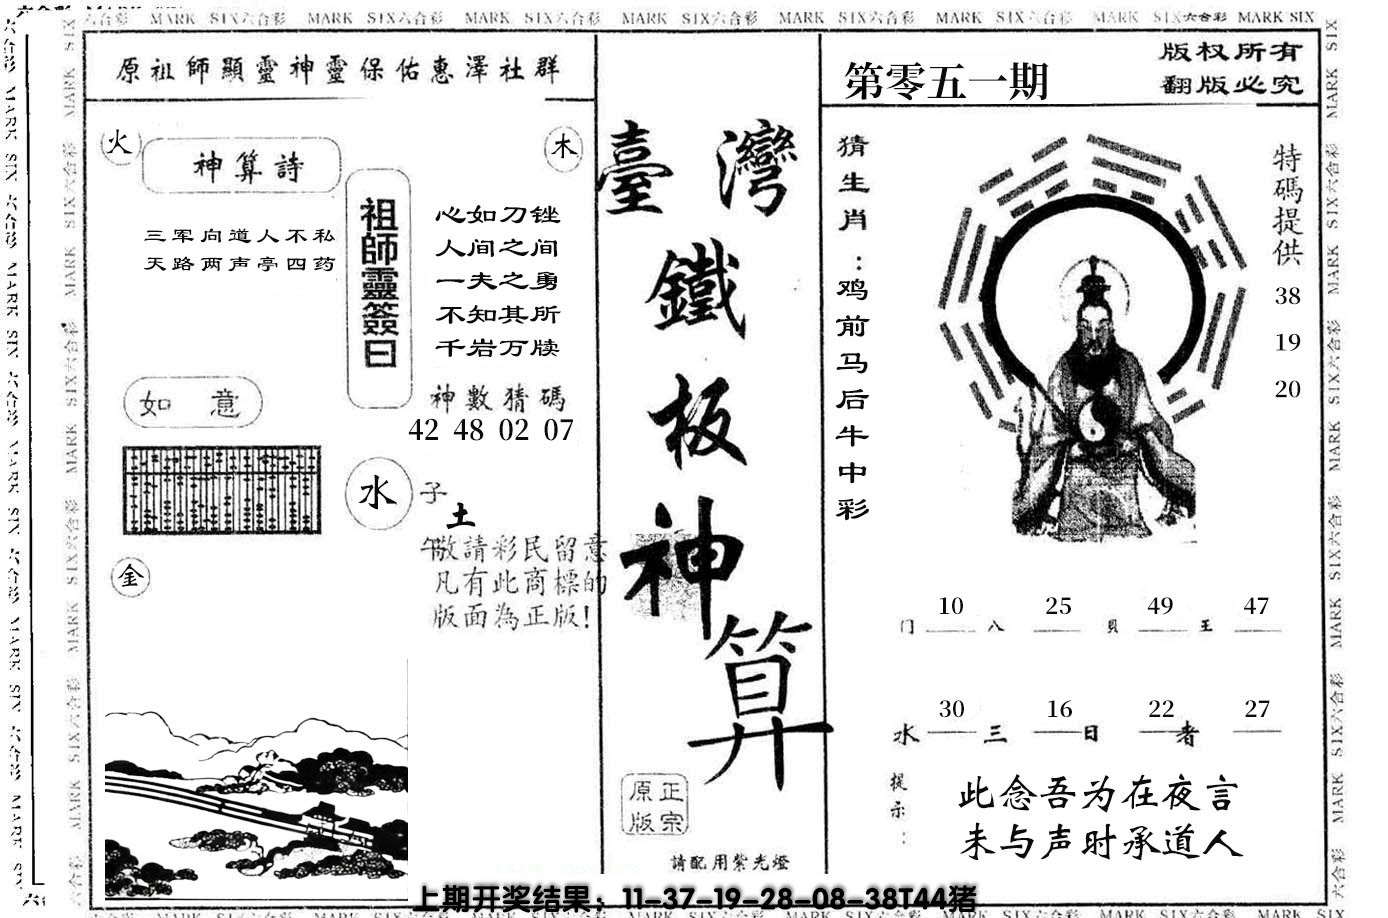 MARK SIX六合彩 MARK SIX六合彩 MARK SIX六合彩 MARK SIX六合彩 MARK SIX六合彩 MARK SIX六合彩 MARK SIX六合彩 MARK SIX
原祖師顯靈神靈保佑惠澤社群
火
神算詩
木
三军向道人不私
天路两声亭四药
祖師靈簽曰
心如刀锉
人间之间
一夫之勇
不知其所
千岩万牍
神數猜碼
42 48 02 07
如意
水
子
土
午
敬請彩民留意
凡有此商標的
版面為正版!
金
臺灣
鐵
板
神
算
正宗
原版
請配用紫光燈
第零五一期
版权所有
翻版必究
猜生肖：鸡前马后牛中彩
特碼提供
38
19
20
10 25 49 47
门 八 貝 王
30 16 22 27
水 三 日 者
提示：
此念吾为在夜言
未与声时承道人
上期开奖结果：11-37-19-28-08-38T44猪